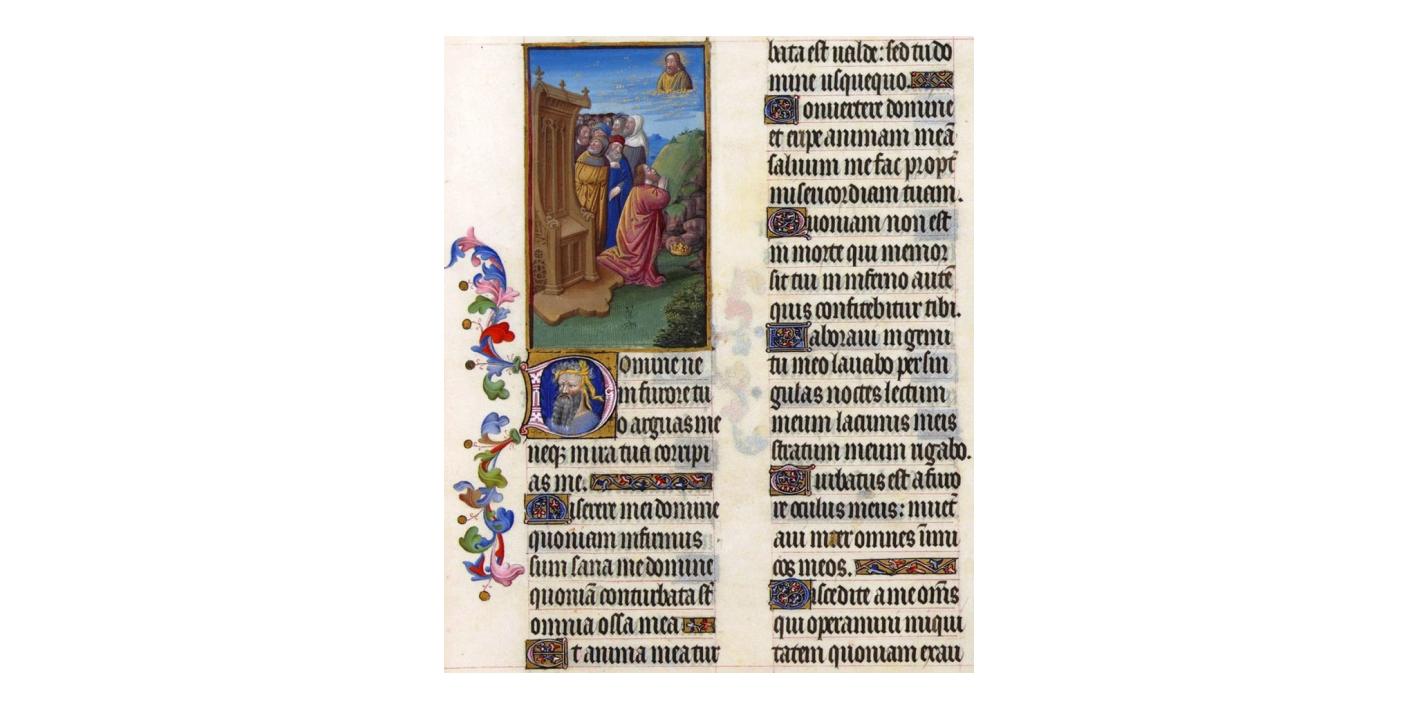 Domine ne
in furore tu
o arguas me
neqꝫ in ira tua corripi
as me.
Miserere mei domine
quoniam infirmus
sum sana me domine
quoniā conturbata st̄
omnia ossa mea
Et anima mea tur
bata est ualde: sed tu do
mine usquequo.
Conuertere domine
et eripe animam meā
saluum me fac propt̄
misericordiam tuam.
Quoniam non est
in morte qui memor
sit tui in inferno autē
quis confitebitur tibi.
Laboraui in gemi
tu meo lauabo per sin
gulas noctes lectum
meum lacrimis meis
stratum meum rigabo.
Turbatus est a furo
re oculus meus: inuet̄
aui inter omnes īimi
cos meos.
Discedite a me om̄s
qui operamini iniqui
tatem quoniam exau